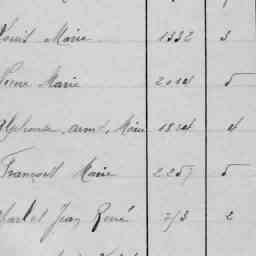 Louis Marie 1332 3
Pierre Marie 2014 5
Alphonse, Armd, Marie 1824 4
François Marie 2257 5
Charles Jean René 713 2